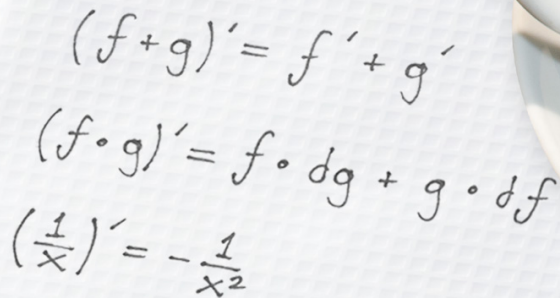 (f+g)′ = f′ + g′
(f•g)′ = f • dg + g • df
(1/x)′ = - 1/x²